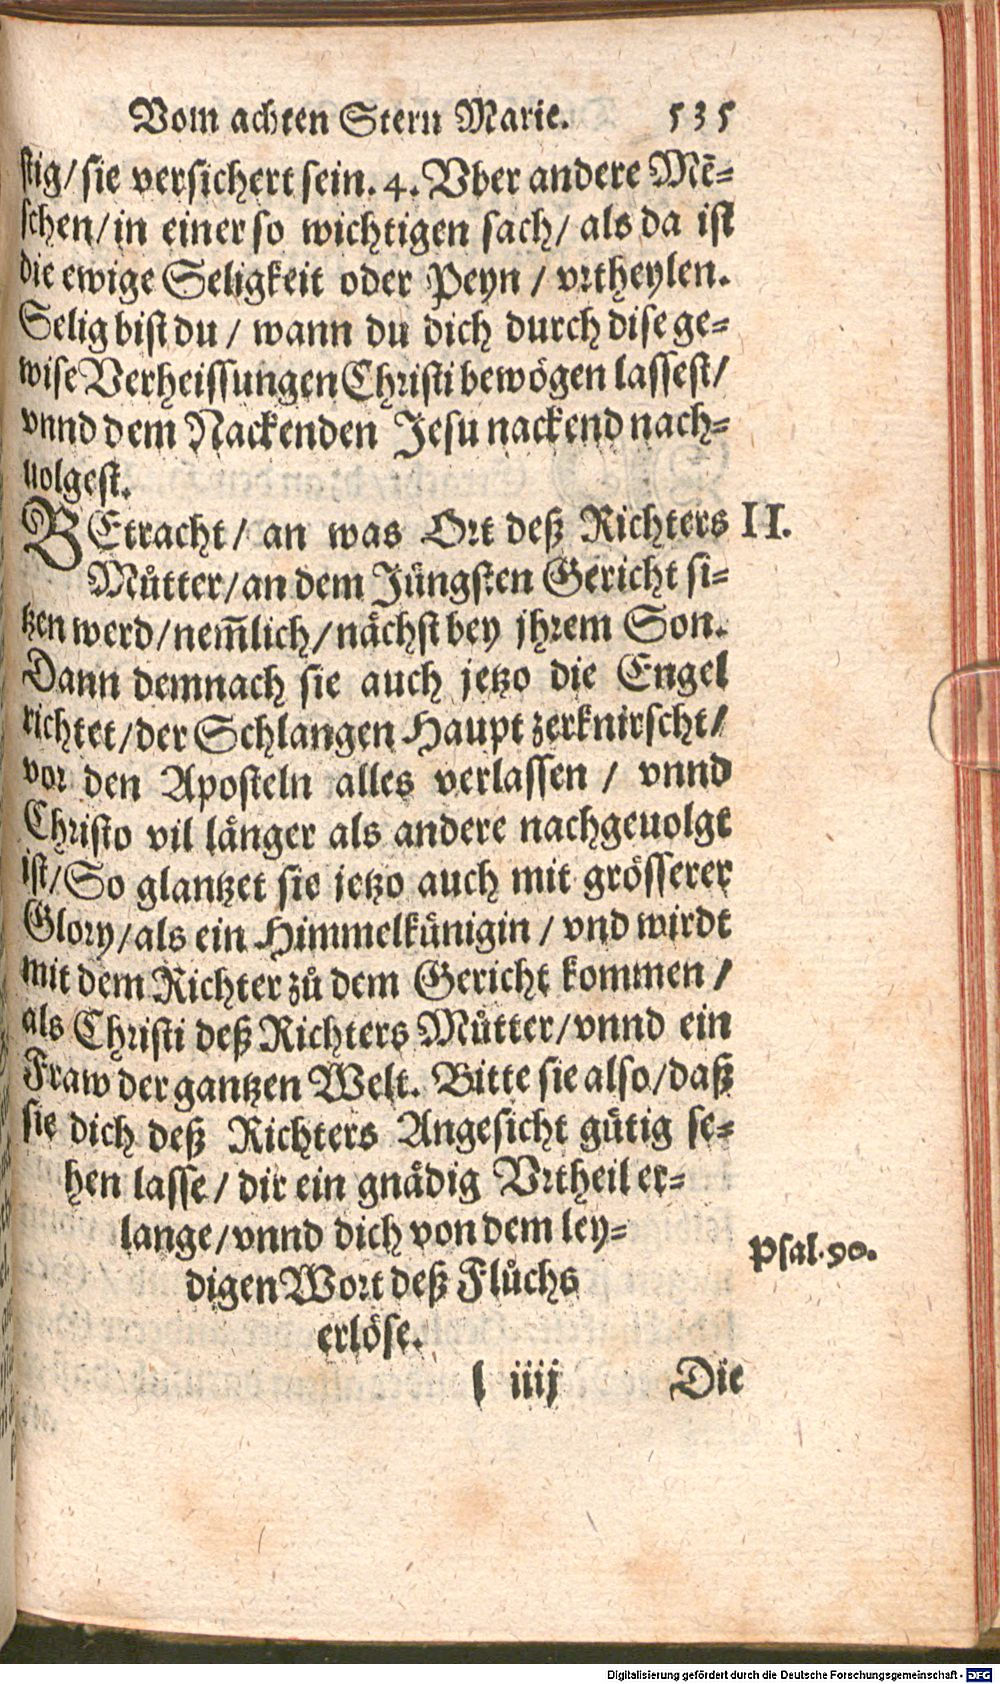 Vom achten Stern Marie. 535
stig/ sie versichert sein. 4. Vber andere Mẽ=
schen/ in einer so wichtigen sach/ als da ist
die ewige Seligkeit oder Peyn / vrtheylen.
Selig bist du / wann du dich durch dise ge=
wise Verheissungen Christi bewögen lassest/
vnnd dem Nackenden Jesu nackend nach=
uolgest.
BEtracht/ an was Ort deß Richters II.
Můtter/ an dem Jüngsten Gericht si=
tzen werd/ nem̃lich/ nächst bey jhrem Son.
Dann demnach sie auch jetzo die Engel
richtet/ der Schlangen Haupt zerknirscht/
vor den Aposteln alles verlassen / vnnd
Christo vil länger als andere nachgeuolgt
ist/ So glantzet sie jetzo auch mit grösserer
Glory/ als ein Himmelkünigin / vnd wirdt
mit dem Richter zů dem Gericht kommen /
als Christi deß Richters Můtter/ vnnd ein
Fraw der gantzen Welt. Bitte sie also/ daß
sie dich deß Richters Angesicht gütig se=
hen lasse/ dir ein gnädig Vrtheil er=
lange/ vnnd dich von dem ley=
digen Wort deß Flůchs
Psal. 90.
erlöse.
l iiij Die
Digitalisierung gefördert durch die Deutsche Forschungsgemeinschaft - DFG